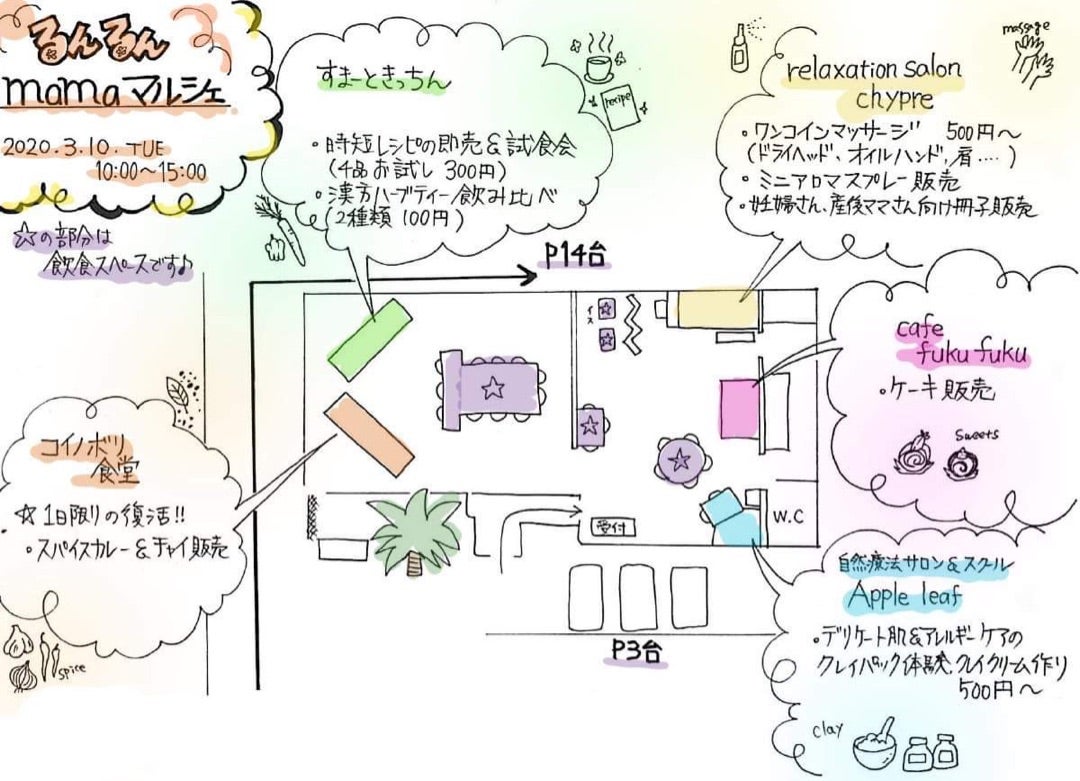 るんるん
mama マルシェ
2020.3.10. TUE
10:00〜15:00
☆の部分は
飲食スペースです♪
すまーときっちん
・時短レシピの即売&試食会
(4品お試し 300円)
・漢方ハーブティー飲み比べ
(2種類 100円)
recipe
massage
relaxation salon
chypre
・ワンコインマッサージ 500円〜
(ドライヘッド、オイルハンド、肩....)
・ミニアロマスプレー販売
・妊婦さん、産後ママさん向け冊子販売
P14台
イス
cafe
fuku fuku
・ケーキ販売
Sweets
コイノボリ
食堂
☆1日限りの復活!!
・スパイスカレー&チャイ販売
spice
受付
W.C
P3台
自然療法サロン&スクール
Apple leaf
・デリケート肌&アレルギーケアの
クレイパック体験、クレイクリーム作り
500円〜
clay